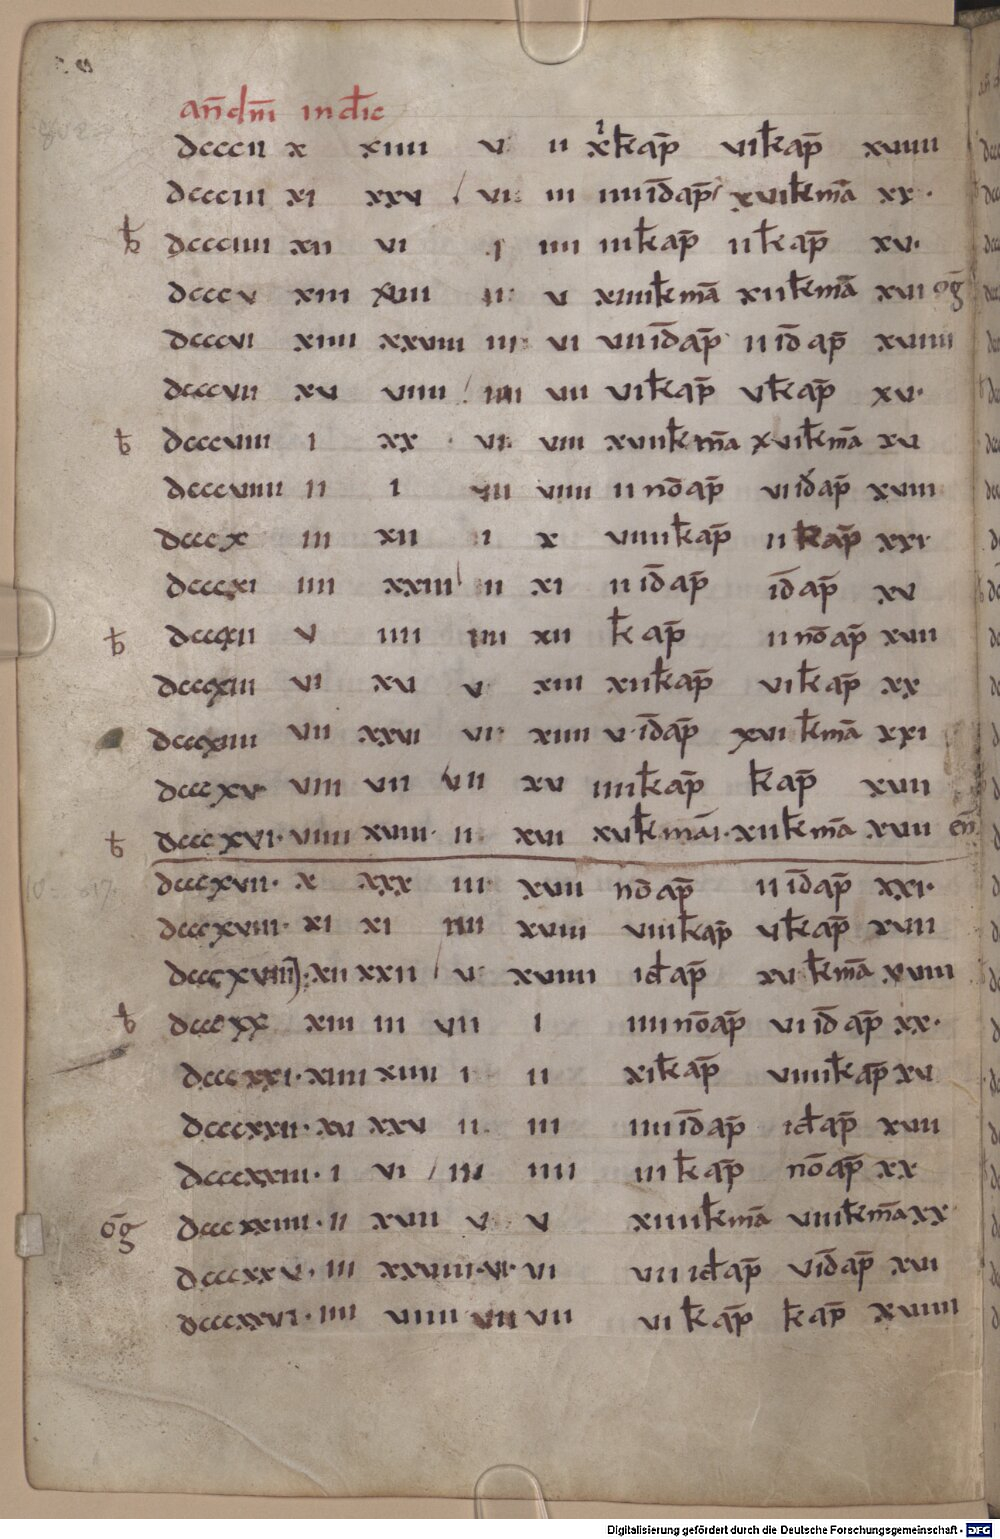 an̄ dn̄i indic̄
dcccii x xiiii v ii xi kt ap̄ vi kt ap̄ xviiii
dccciii xi xxv vi iii iiii id̄ ap̄ xvi kt mā xx ·
b dccciiii xii vi i iiii iii kt ap̄ ii kt ap̄ xv·
dcccv xiii xvii ii v xiiii kt mā xii kt mā xvii oḡ
dcccvi xiiii xxviii iii vi viii id̄ ap̄ ii id̄ ap̄ xviiii
dcccvii xv viiii iiii vii vi kt ap̄ v kt ap̄ xv·
b dcccviii i xx vi viii xviii kt mā xvi kt mā xv
dcccviiii ii i vii viiii ii nō ap̄ vi id̄ ap̄ xviii
dcccx iii xii i x viiii kt ap̄ ii kt ap̄ xxi·
dcccxi iiii xxiii ii xi ii id̄ ap̄ id̄ ap̄ xv
b dcccxii v iiii iiii xii kt ap̄ ii nō ap̄ xvii
dcccxiii vi xv v xiii xii kt ap̄ vi kt ap̄ xx
dcccxiiii vii xxvi vi xiiii v· id̄ ap̄ xvi kt mā xxi
dcccxv· viii vii vii xv iiii kt ap̄ kt ap̄ xvii
b dcccxvi· viiii xviii· ii xvi xv kt mā · xii kt mā xvii en̄
dcccxvii· x xxx iii xvii nō ap̄ ii id̄ ap̄ xxi·
dcccxviii· xi xi iiii xviii viiii kt ap̄ v kt ap̄ xvii
dcccxviiii· xii xxii v xviiii id ap̄ xv kt mā xviiii
b dcccxx xiii iii vii i iiii nō ap̄ vi id̄ ap̄ xx·
dcccxxi· xiiii xiiii i ii xi kt ap̄ viiii kt ap̄ xv
dcccxxii· xv xxv ii iii iiii id̄ ap̄ id ap̄ xvii
dcccxxiii· i vi iii iiii iii kt ap̄ nō ap̄ xx
oḡ dcccxxiiii· ii xvii v v xiiii kt mā viiii kt mā xx
dcccxxv· iii xxviiii· vi· vi viii id ap̄ v id̄ ap̄ xvi
dcccxxvi· iiii viiii vii vii vi kt ap̄ kt ap̄ xviiii
Digitalisierung gefördert durch die Deutsche Forschungsgemeinschaft - DFG